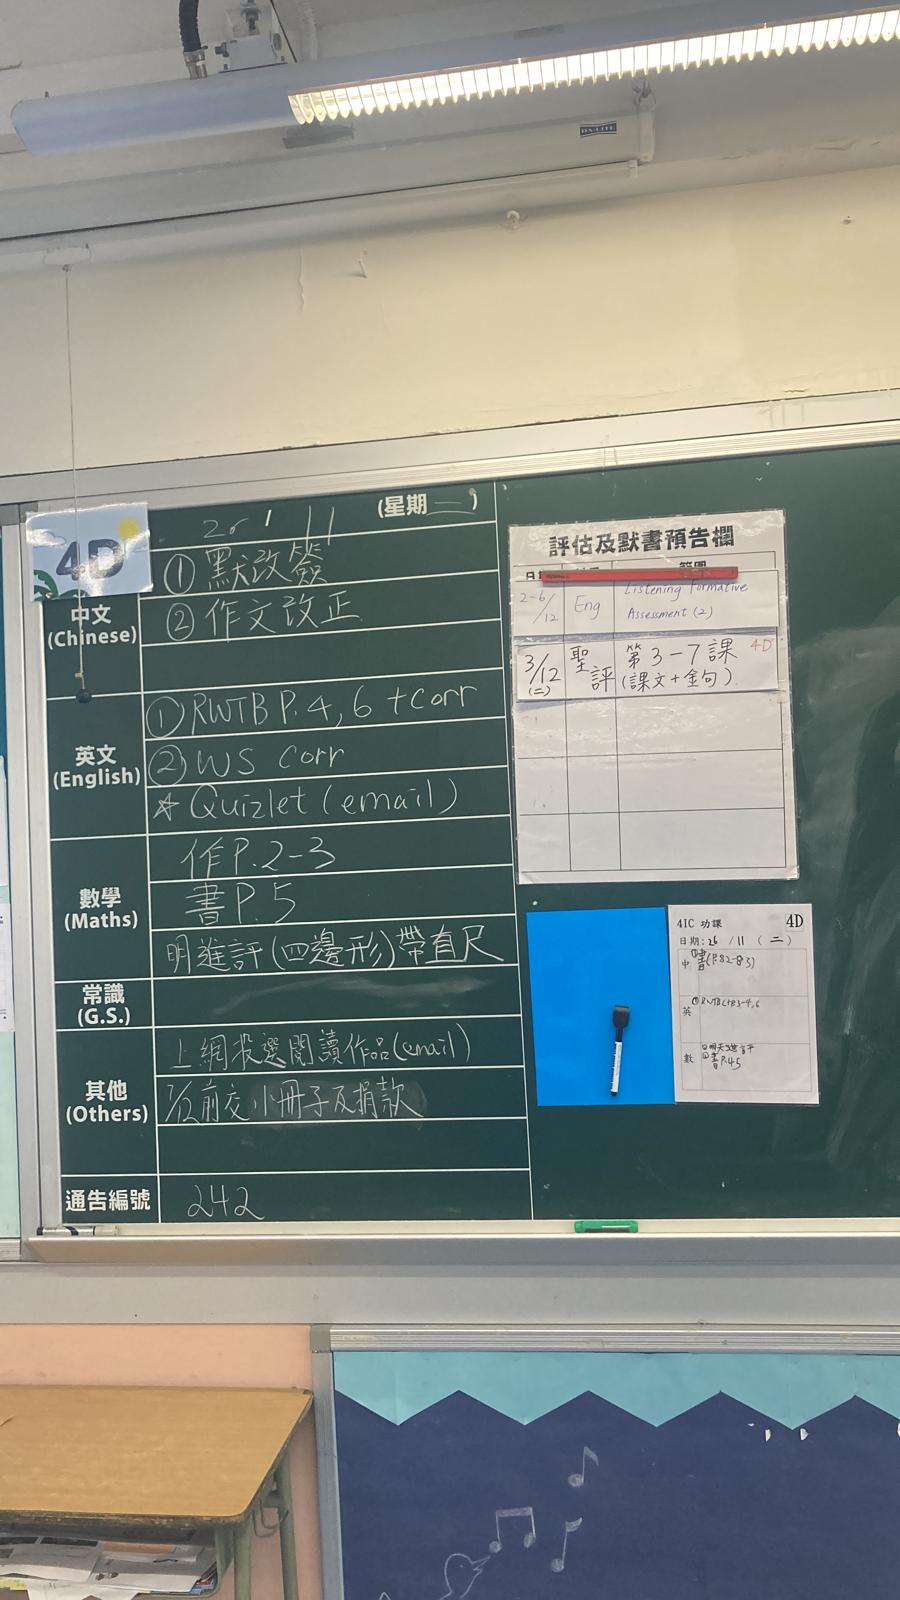 DA-LITE
4D
(星期二)
26 11
中文
(Chinese)
① 默改簽
② 作文改正
英文
(English)
① RWTB P.4, 6 + corr
② WS corr
* Quizlet (email)
數學
(Maths)
作P.2-3
書P.5
明進評(四邊形)帶直尺
常識
(G.S.)
其他
(Others)
上網投選閱讀作品(email)
1/12前交小冊子及捐款
通告編號
242
評估及默書預告欄
2-6/12 Eng Listening Formative
Assessment (2)
3/12 (二) 聖評 第3-7課 4D
(課文+金句)
4IC 功課 4D
日期: 26 / 11 ( 二 )
中 書(P.82-83)
英
數 明天進評
書P.45